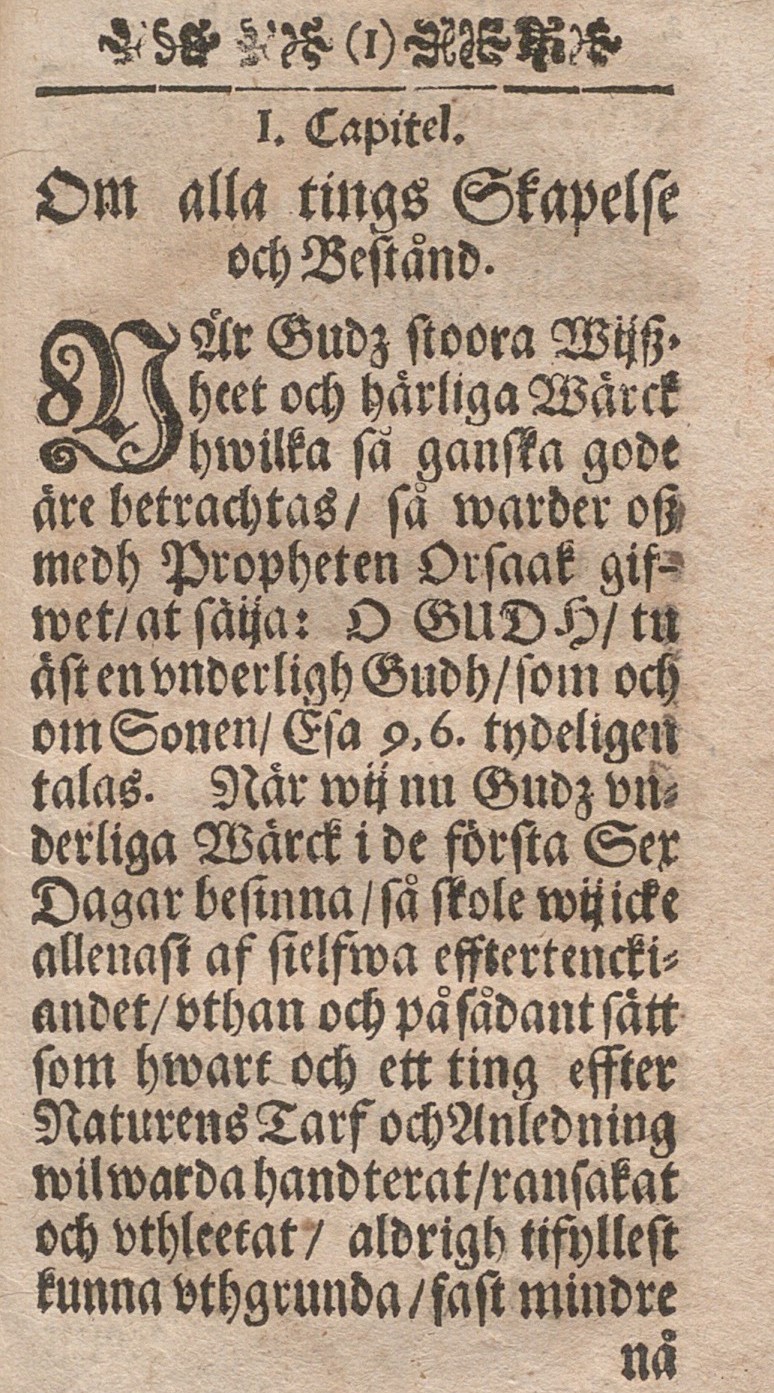 (1)
I. Capitel.
Om alla tings Skapelse
och Bestånd.
NÄr Gudz stoora Wijß-
heet och härliga Wärck
hwilka så ganska gode
äre betrachtas/ så warder oß
medh Propheten Orsaak gif-
wet/ at säija: O GUDH/ tu
äst en vnderligh Gudh/ som och
om Sonen/ Esa 9, 6. tydeligen
talas. När wij nu Gudz vn-
derliga Wärck i de första Sex
Dagar besinna/ så skole wij icke
allenast af sielfwa efftertencki-
andet/ vthan och på sådant sätt
som hwart och ett ting effter
Naturens Tarf och Anledning
wil warda handterat/ ransakat
och vthleetat/ aldrigh tifyllest
kunna vthgrunda/ fast mindre
nå